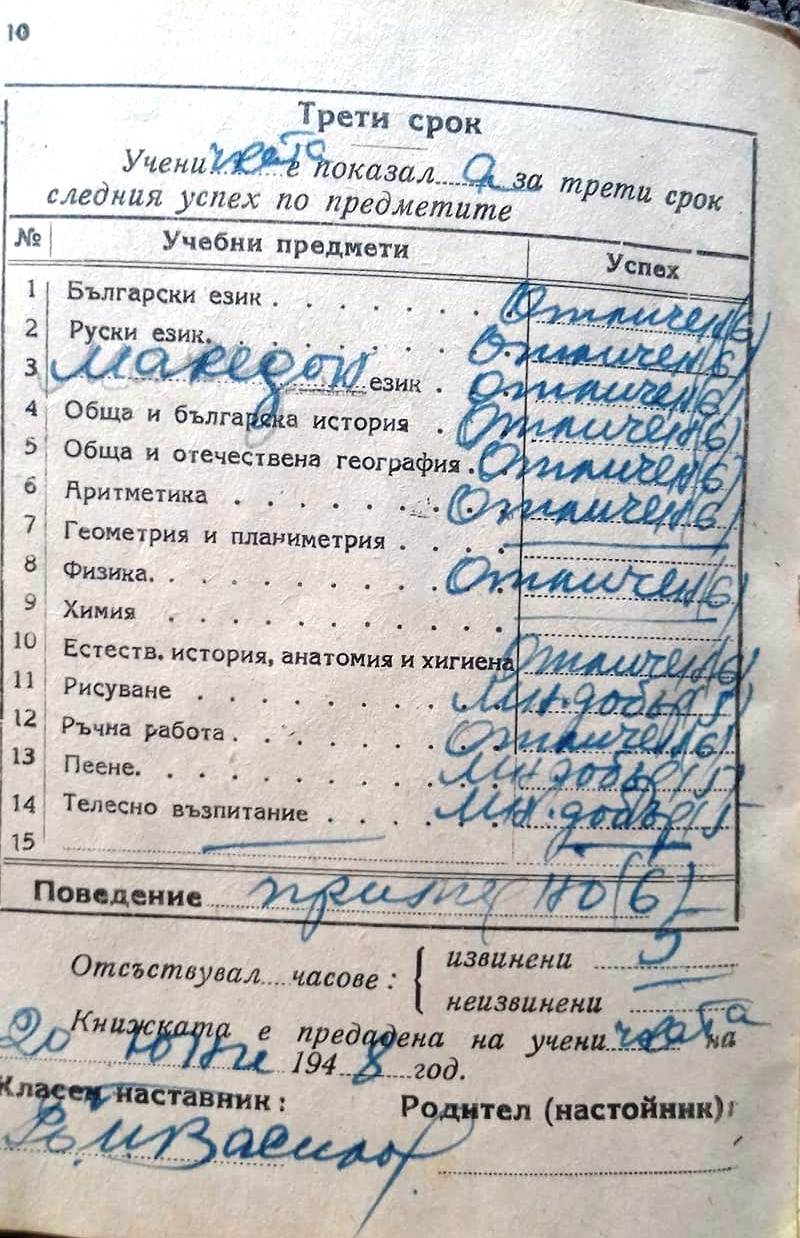 10
Трети срок
Ученичката е показал а за трети срок
следния успех по предметите
№ Учебни предмети Успех
1 Български език . . . . . . . Отличен (6)
2 Руски език. . . . . . . . Отличен (6)
3 Македон език . Отличен (6)
4 Обща и българска история . Отличен (6)
5 Обща и отечествена география . Отличен (6)
6 Аритметика . . . . . . Отличен (6)
7 Геометрия и планиметрия . . . .
8 Физика. . . . . . . . Отличен (6)
9 Химия . . . . . . . . .
10 Естеств. история, анатомия и хигиена Отличен (6)
11 Рисуване . . . . . . . Мн. добър (5)
12 Ръчна работа . . . . . . Отличен (6)
13 Пеене. . . . . . . . Мн добър (5)
14 Телесно възпитание . . . . Мн. добър (5
15
Поведение примерно (6)
Отсъствувал.... часове : извинени 5
неизвинени
Книжката е предадена на ученичката на
20 юни 1948 год.
Класен наставник : Родител (настойник) :